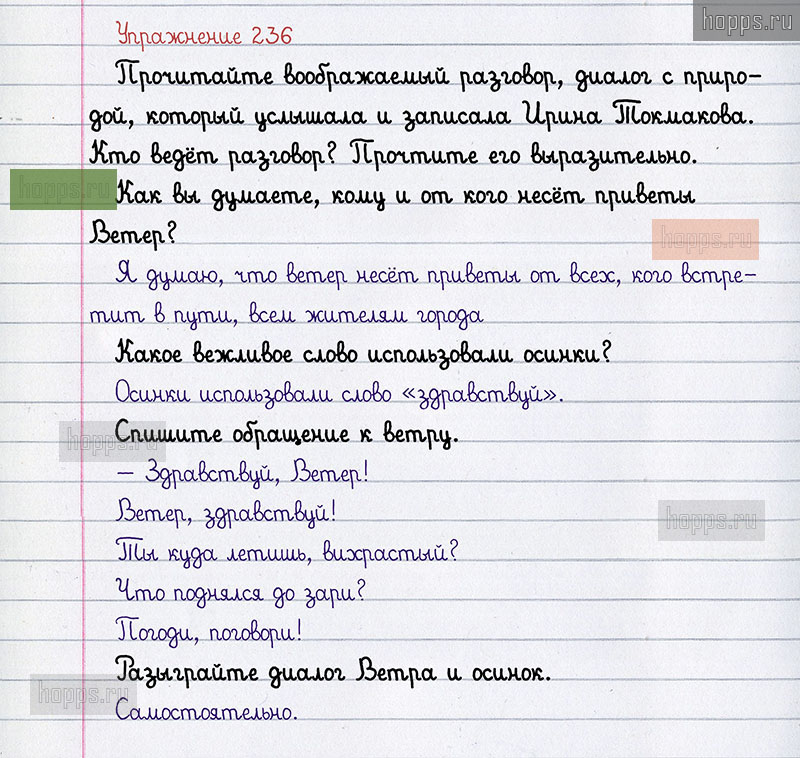 hopps.ru
Упражнение 236
Прочитайте воображаемый разговор, диалог с приро-
дой, который услышала и записала Ирина Токмакова.
Кто ведёт разговор? Прочтите его выразительно.
hopps.ru
Как вы думаете, кому и от кого несёт приветы
Ветер?
hopps.ru
Я думаю, что ветер несёт приветы от всех, кого встре-
тит в пути, всем жителям города
Какое вежливое слово использовали осинки?
Осинки использовали слово «здравствуй».
Спишите обращение к ветру.
hopps.ru
– Здравствуй, Ветер!
Ветер, здравствуй!
hopps.ru
Ты куда летишь, вихрастый?
Что поднялся до зари?
Погоди, поговори!
Разыграйте диалог Ветра и осинок.
hopps.ru
Самостоятельно.